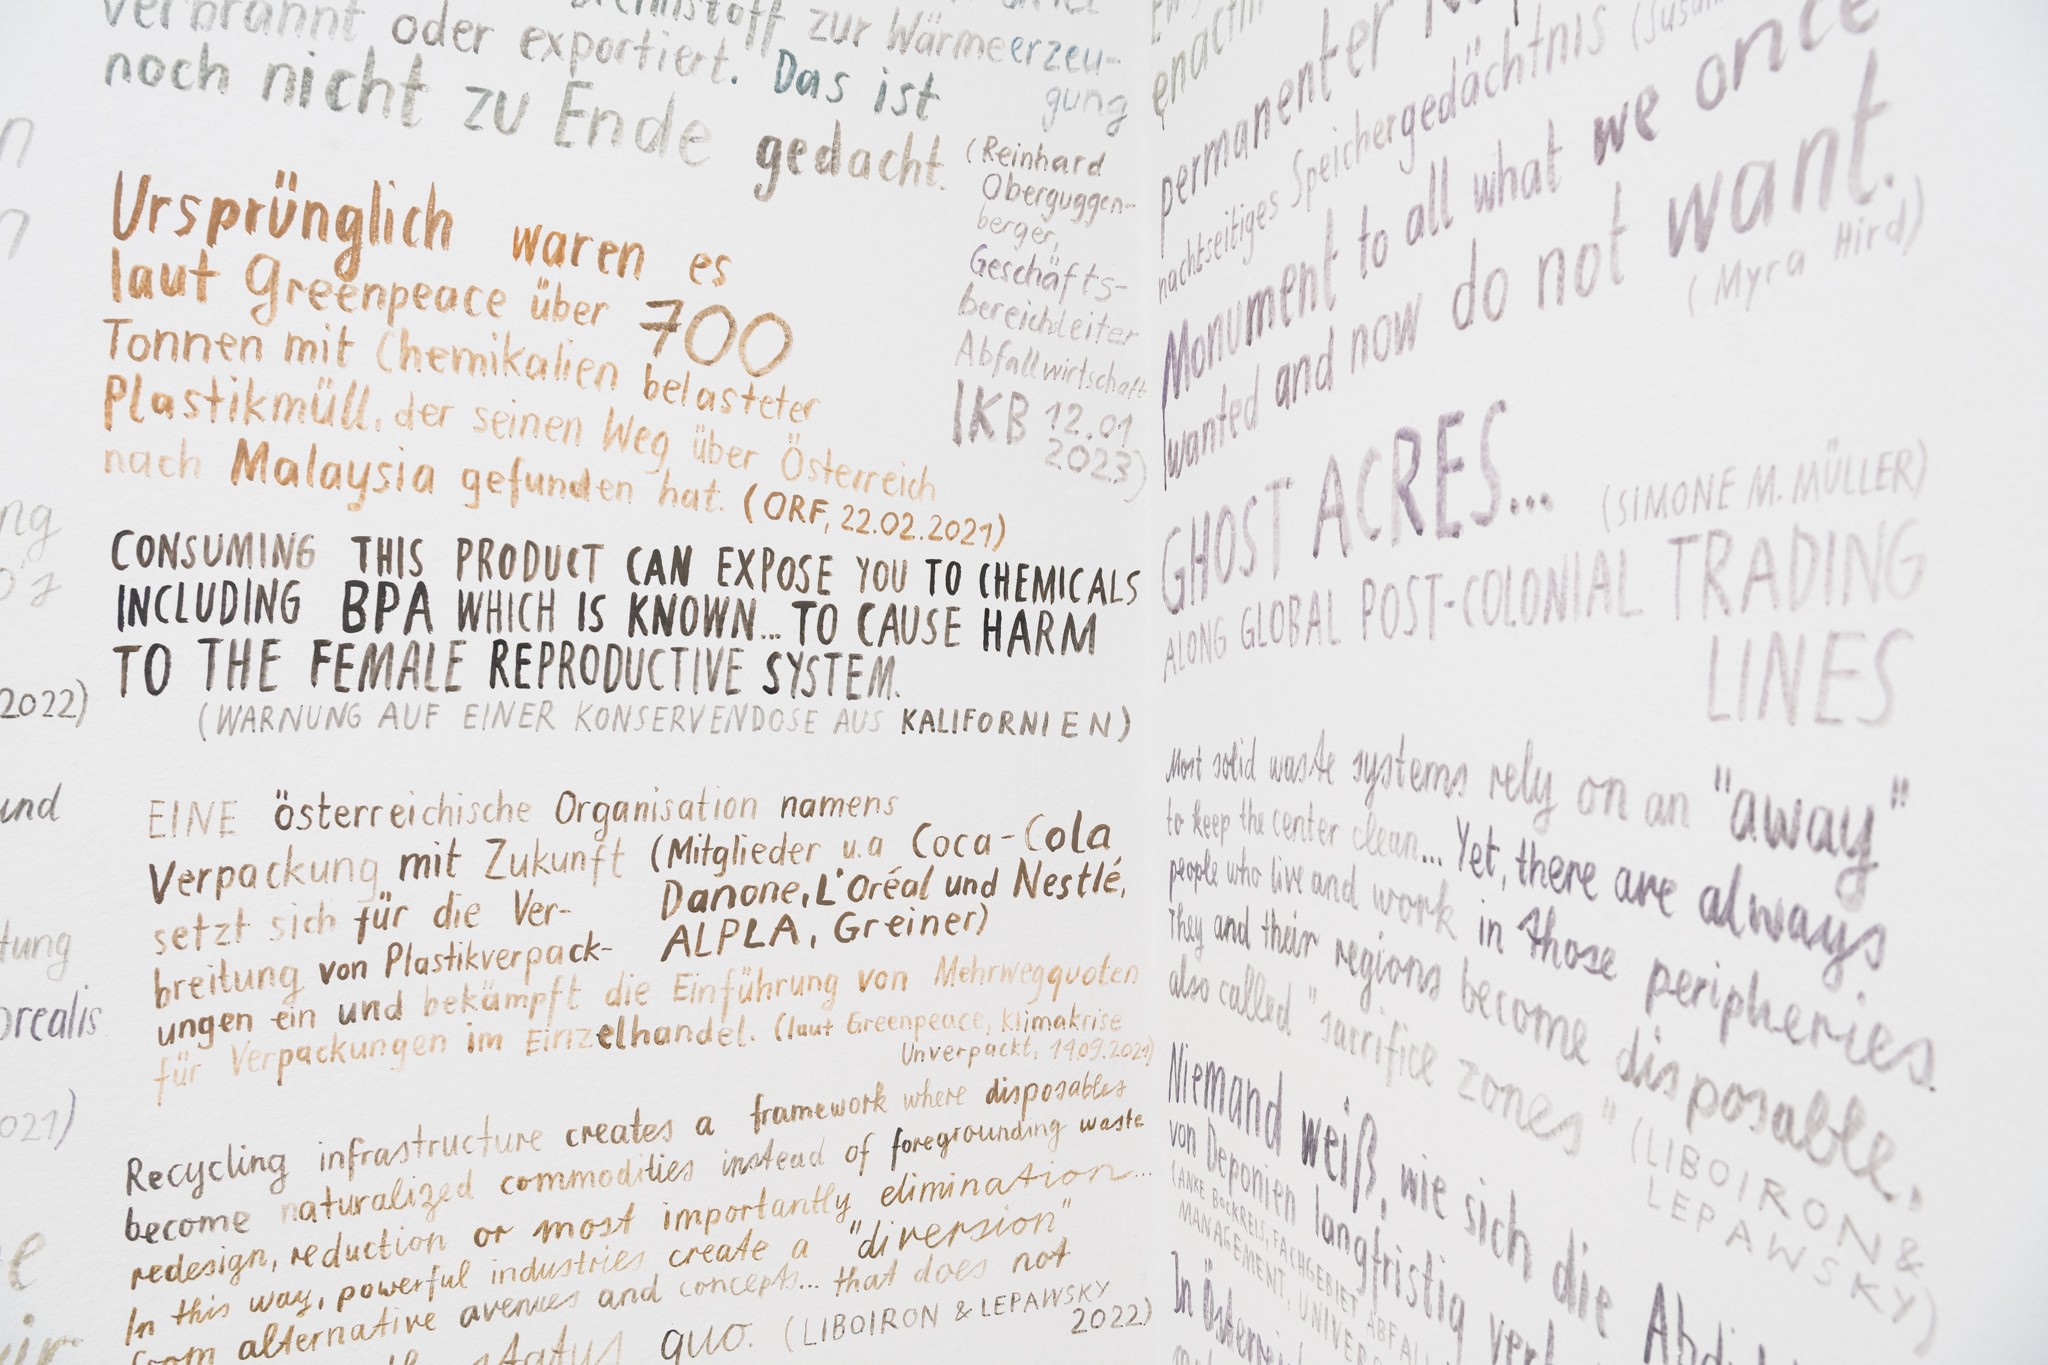 zur Wärmeerzeu-
verbrannt oder exportiert. Das ist
gung
noch nicht zu Ende gedacht.
(Reinhard
Oberguggen-
berger,
Geschäfts-
bereichleiter
Abfallwirtschaft
IKB 12.01
2023)
Ursprünglich waren es
laut Greenpeace über 700
Tonnen mit Chemikalien belasteter
Plastikmüll, der seinen Weg über Österreich
nach Malaysia gefunden hat. (ORF, 22.02.2021)
CONSUMING THIS PRODUCT CAN EXPOSE YOU TO CHEMICALS
INCLUDING BPA WHICH IS KNOWN... TO CAUSE HARM
TO THE FEMALE REPRODUCTIVE SYSTEM.
(WARNUNG AUF EINER KONSERVENDOSE AUS KALIFORNIEN)
EINE österreichische Organisation namens
Verpackung mit Zukunft (Mitglieder u.a Coca-Cola
Danone, L'Oréal und Nestlé,
ALPLA, Greiner)
setzt sich für die Ver-
breitung von Plastikverpack-
ungen ein und bekämpft die Einführung von Mehrwegquoten
für Verpackungen im Einzelhandel. (laut Greenpeace, Klimakrise
Unverpackt, 14.09.2021)
Recycling infrastructure creates a framework where disposables
become naturalized commodities instead of foregrounding waste
redesign, reduction or most importantly elimination...
In this way, powerful industries create a "diversion"
from alternative avenues and concepts... that does not
status quo. (LIBOIRON & LEPAWSKY
2022)
2022)
und
tung
orealis
021)
permanenter
nachtseitiges Speichergedächtnis
Monument to all what we once
wanted and now do not want.
(Myra Hird)
GHOST ACRES... (SIMONE M. MÜLLER)
ALONG GLOBAL POST-COLONIAL TRADING
LINES
Most solid waste systems rely on an "away"
to keep the center clean... Yet, there are always
people who live and work in those peripheries.
They and their regions become disposable,
also called "sacrifice zones" (LIBOIRON &
LEPAWSKY)
Niemand weiß, wie sich die
von Deponien langfristig
(ANKE BOCKREIS, FACHGEBIET
MANAGEMENT,
In